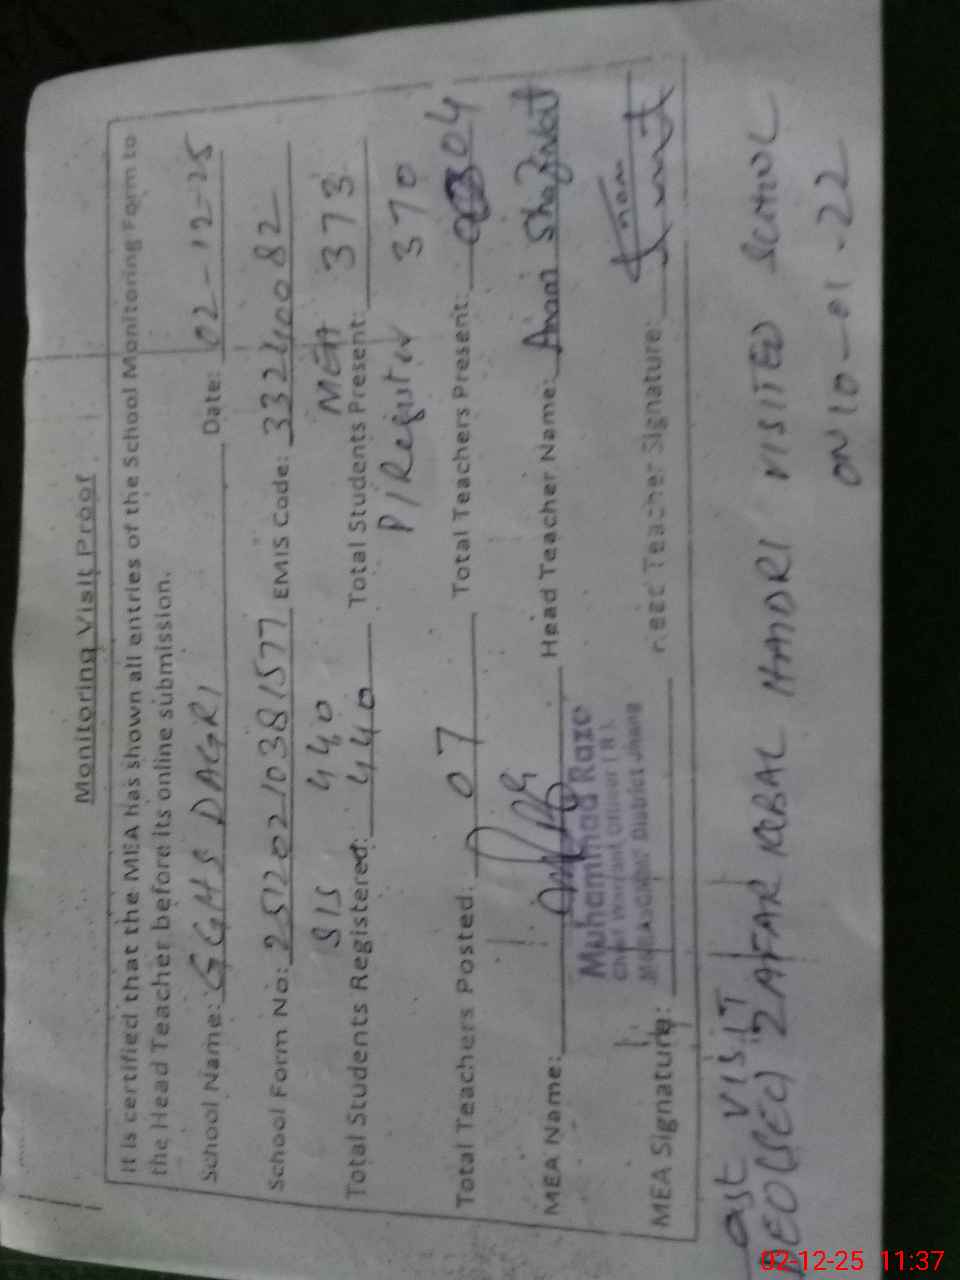 Monitoring Visit Proof
It is certified that the MEA has shown all entries of the School Monitoring Form to
the Head Teacher before its online submission.
School Name: GGHS DAGRI Date: 02-12-25
School Form No: 25120210381577 EMIS Code: 33240082
SIS 440 MEA 373
Total Students Registered: 440 Total Students Present:
P/Register 370
Total Teachers Posted: 07 Total Teachers Present: 04
MEA Name: Head Teacher Name: Anam Shafqat
Muhammad Raza
Chief Warrant Officer (R)
District Jhang
MEA Signature: Head Teacher Signature:
Last VISIT
DEO(SEC) ZAFAR IQBAL HAIDRI VISITED SCHOOL
ON 10-01-22
02-12-25 11:37